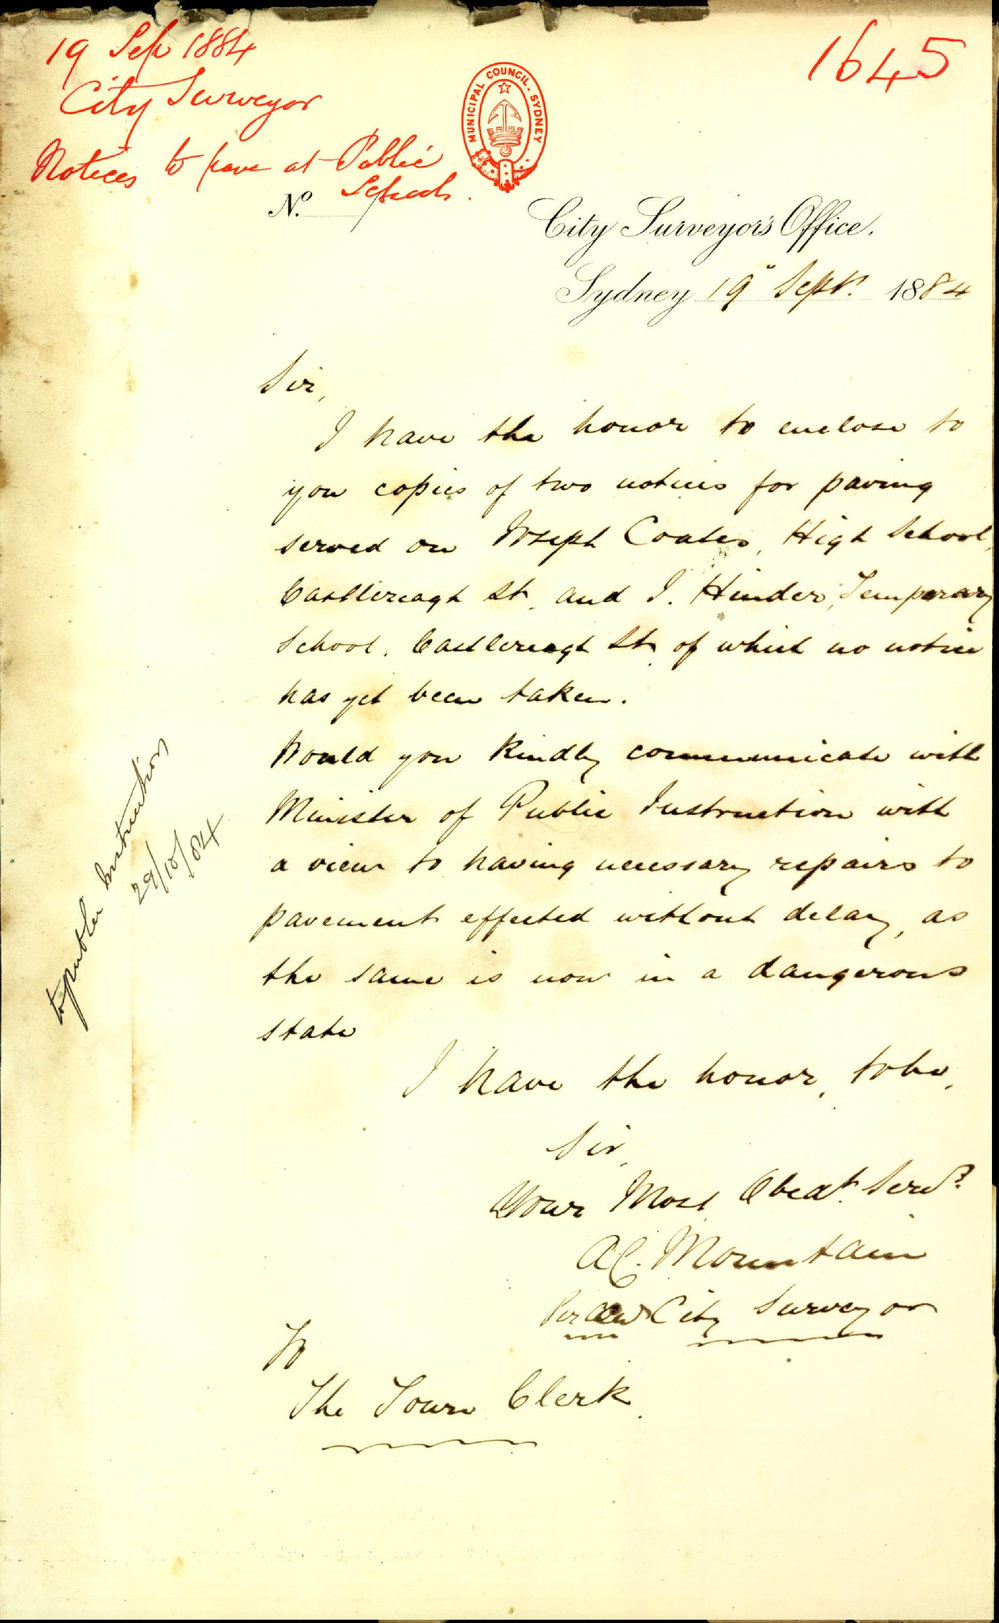 19 Sep 1884
City Surveyor
Notices to pave at Public
Schools.
1645
MUNICIPAL COUNCIL. SYDNEY
No.
City Surveyor's Office.
Sydney 19" Sept. 1884
Sir,
I have the honor to enclose to
you copies of two notices for paving
served on Joseph Coates, High School,
Castlereagh St. and J. Hinder, Temporary
School, Castlereagh St. of which no notice
has yet been taken.
Would you kindly communicate with
Minister of Public Instruction with
a view to having necessary repairs to
pavement effected without delay, as
the same is now in a dangerous
state
I have the honor, to be,
Sir,
Your Most Obedt. Servt.
A.C. Mountain
Per City Surveyor
To
The Town Clerk.
to public Instruction
29/10/84